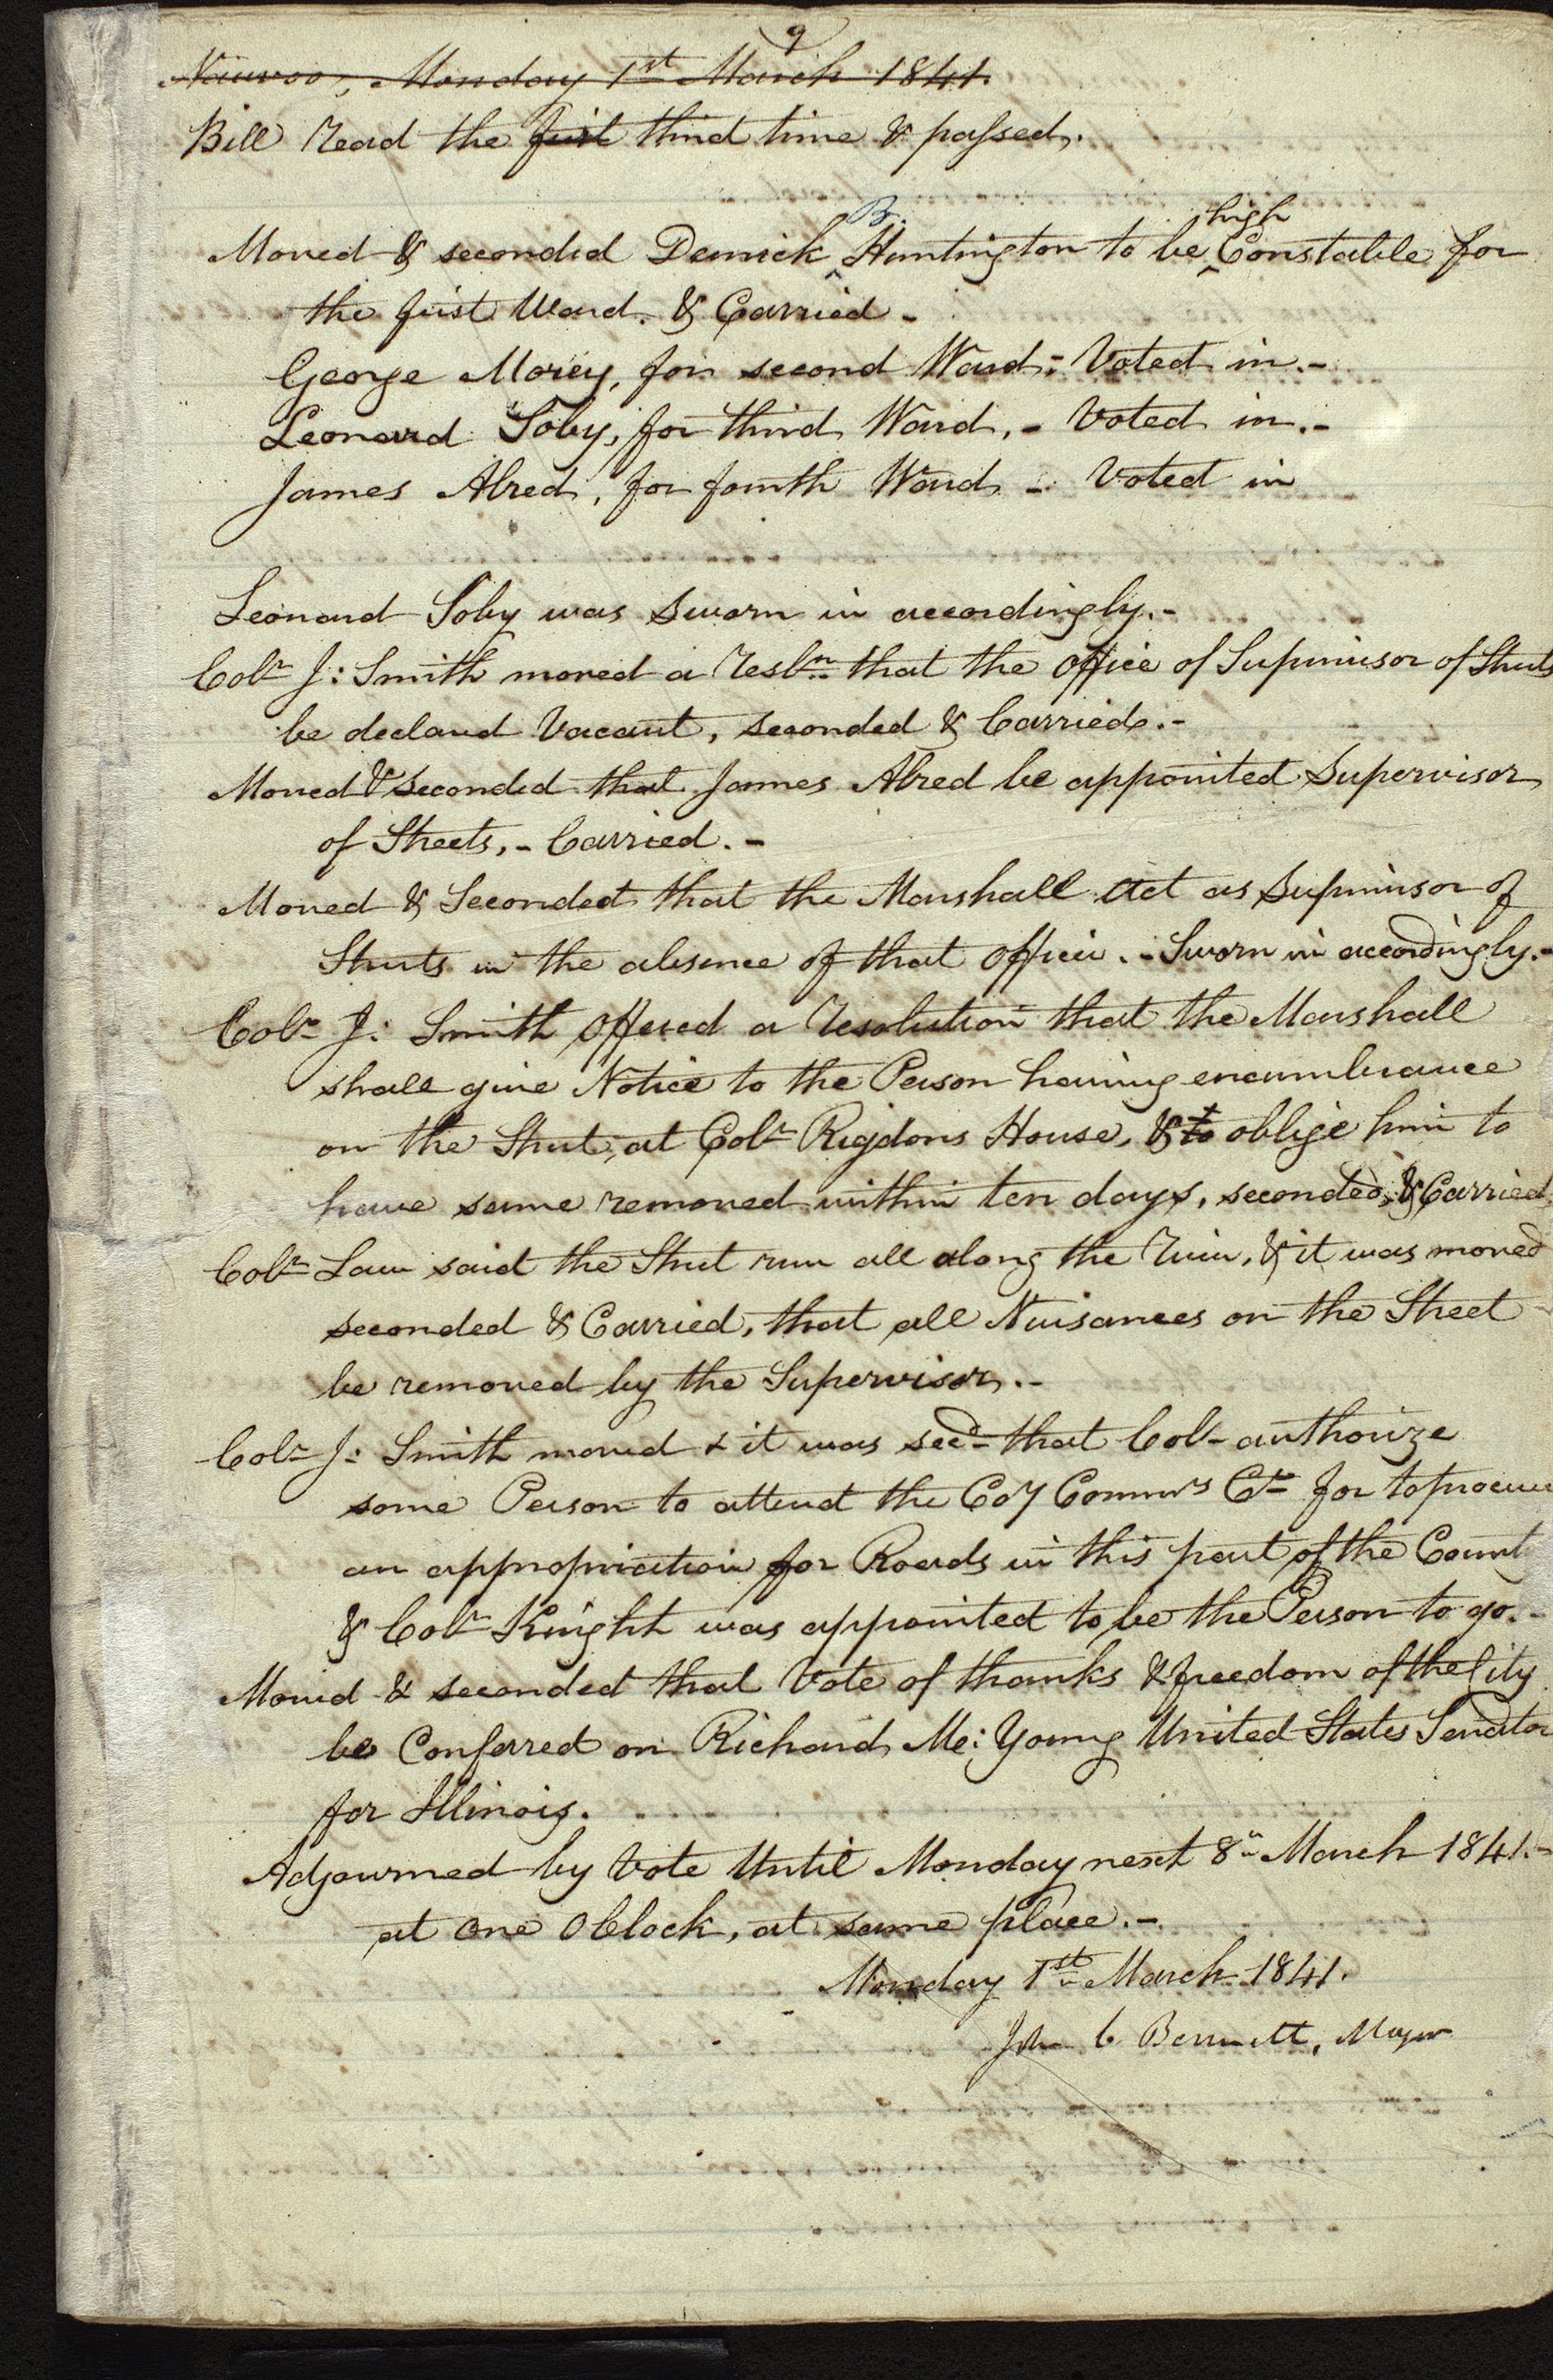 9
Nauvoo, Monday 1st March 1841.
Bill read the first third time & passed.
Moved & seconded Demick B. Huntington to be high Constable for
the first Ward. & Carried -
George Morey, for second Ward - Voted in. -
Leonard Soby, for third Ward, - Voted in. -
James Alred, for fourth Ward - Voted in
Leonard Soby was sworn in accordingly. -
Colr J: Smith moved a resln that the office of Supervisor of Streets
be declared Vacant, seconded & Carried. -
Moved & Seconded that James Alred be appointed Supervisor
of Streets, - Carried. -
Moved & Seconded that the Marshall act as Supervisor of
Streets in the absence of that officer. - Sworn in accordingly. -
Colr J: Smith offered a resolution that the Marshall
shall give Notice to the Person having encumbrance
on the Street, at Colr Rigdons House, & to oblige him to
have same removed within ten days, seconded, & Carried
Colr Law said the Street run all along the river, & it was moved
seconded & Carried, that all Nuisances on the Street
be removed by the Supervisor. -
Colr J: Smith moved & it was secd that Col authorize
some Person to attend the Coy Commrs Ct for to procure
an appropriation for Roads in this part of the Count
& Colr Knight was appointed to be the Person to go. -
Moved & seconded that Vote of thanks & freedom of the City
be Conferred on Richard M: Young United States Senator
for Illinois.
Adjourned by Vote Until Monday next 8th March 1841. -
at one OClock, at same place. -
Monday 1st March 1841.
John C Bennett, Mayor